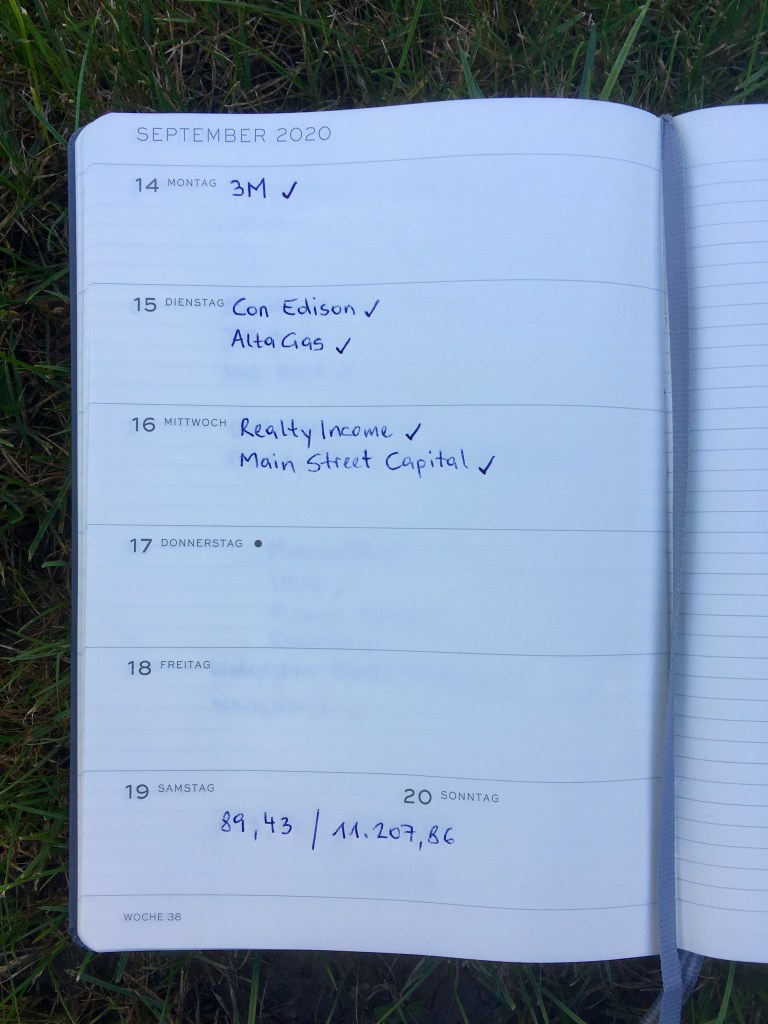 SEPTEMBER 2020
14 MONTAG 3M ✓
15 DIENSTAG Con Edison ✓
AltaGas ✓
16 MITTWOCH Realty Income ✓
Main Street Capital ✓
17 DONNERSTAG •
18 FREITAG
19 SAMSTAG 20 SONNTAG
89,43 / 11.207,86
WOCHE 38